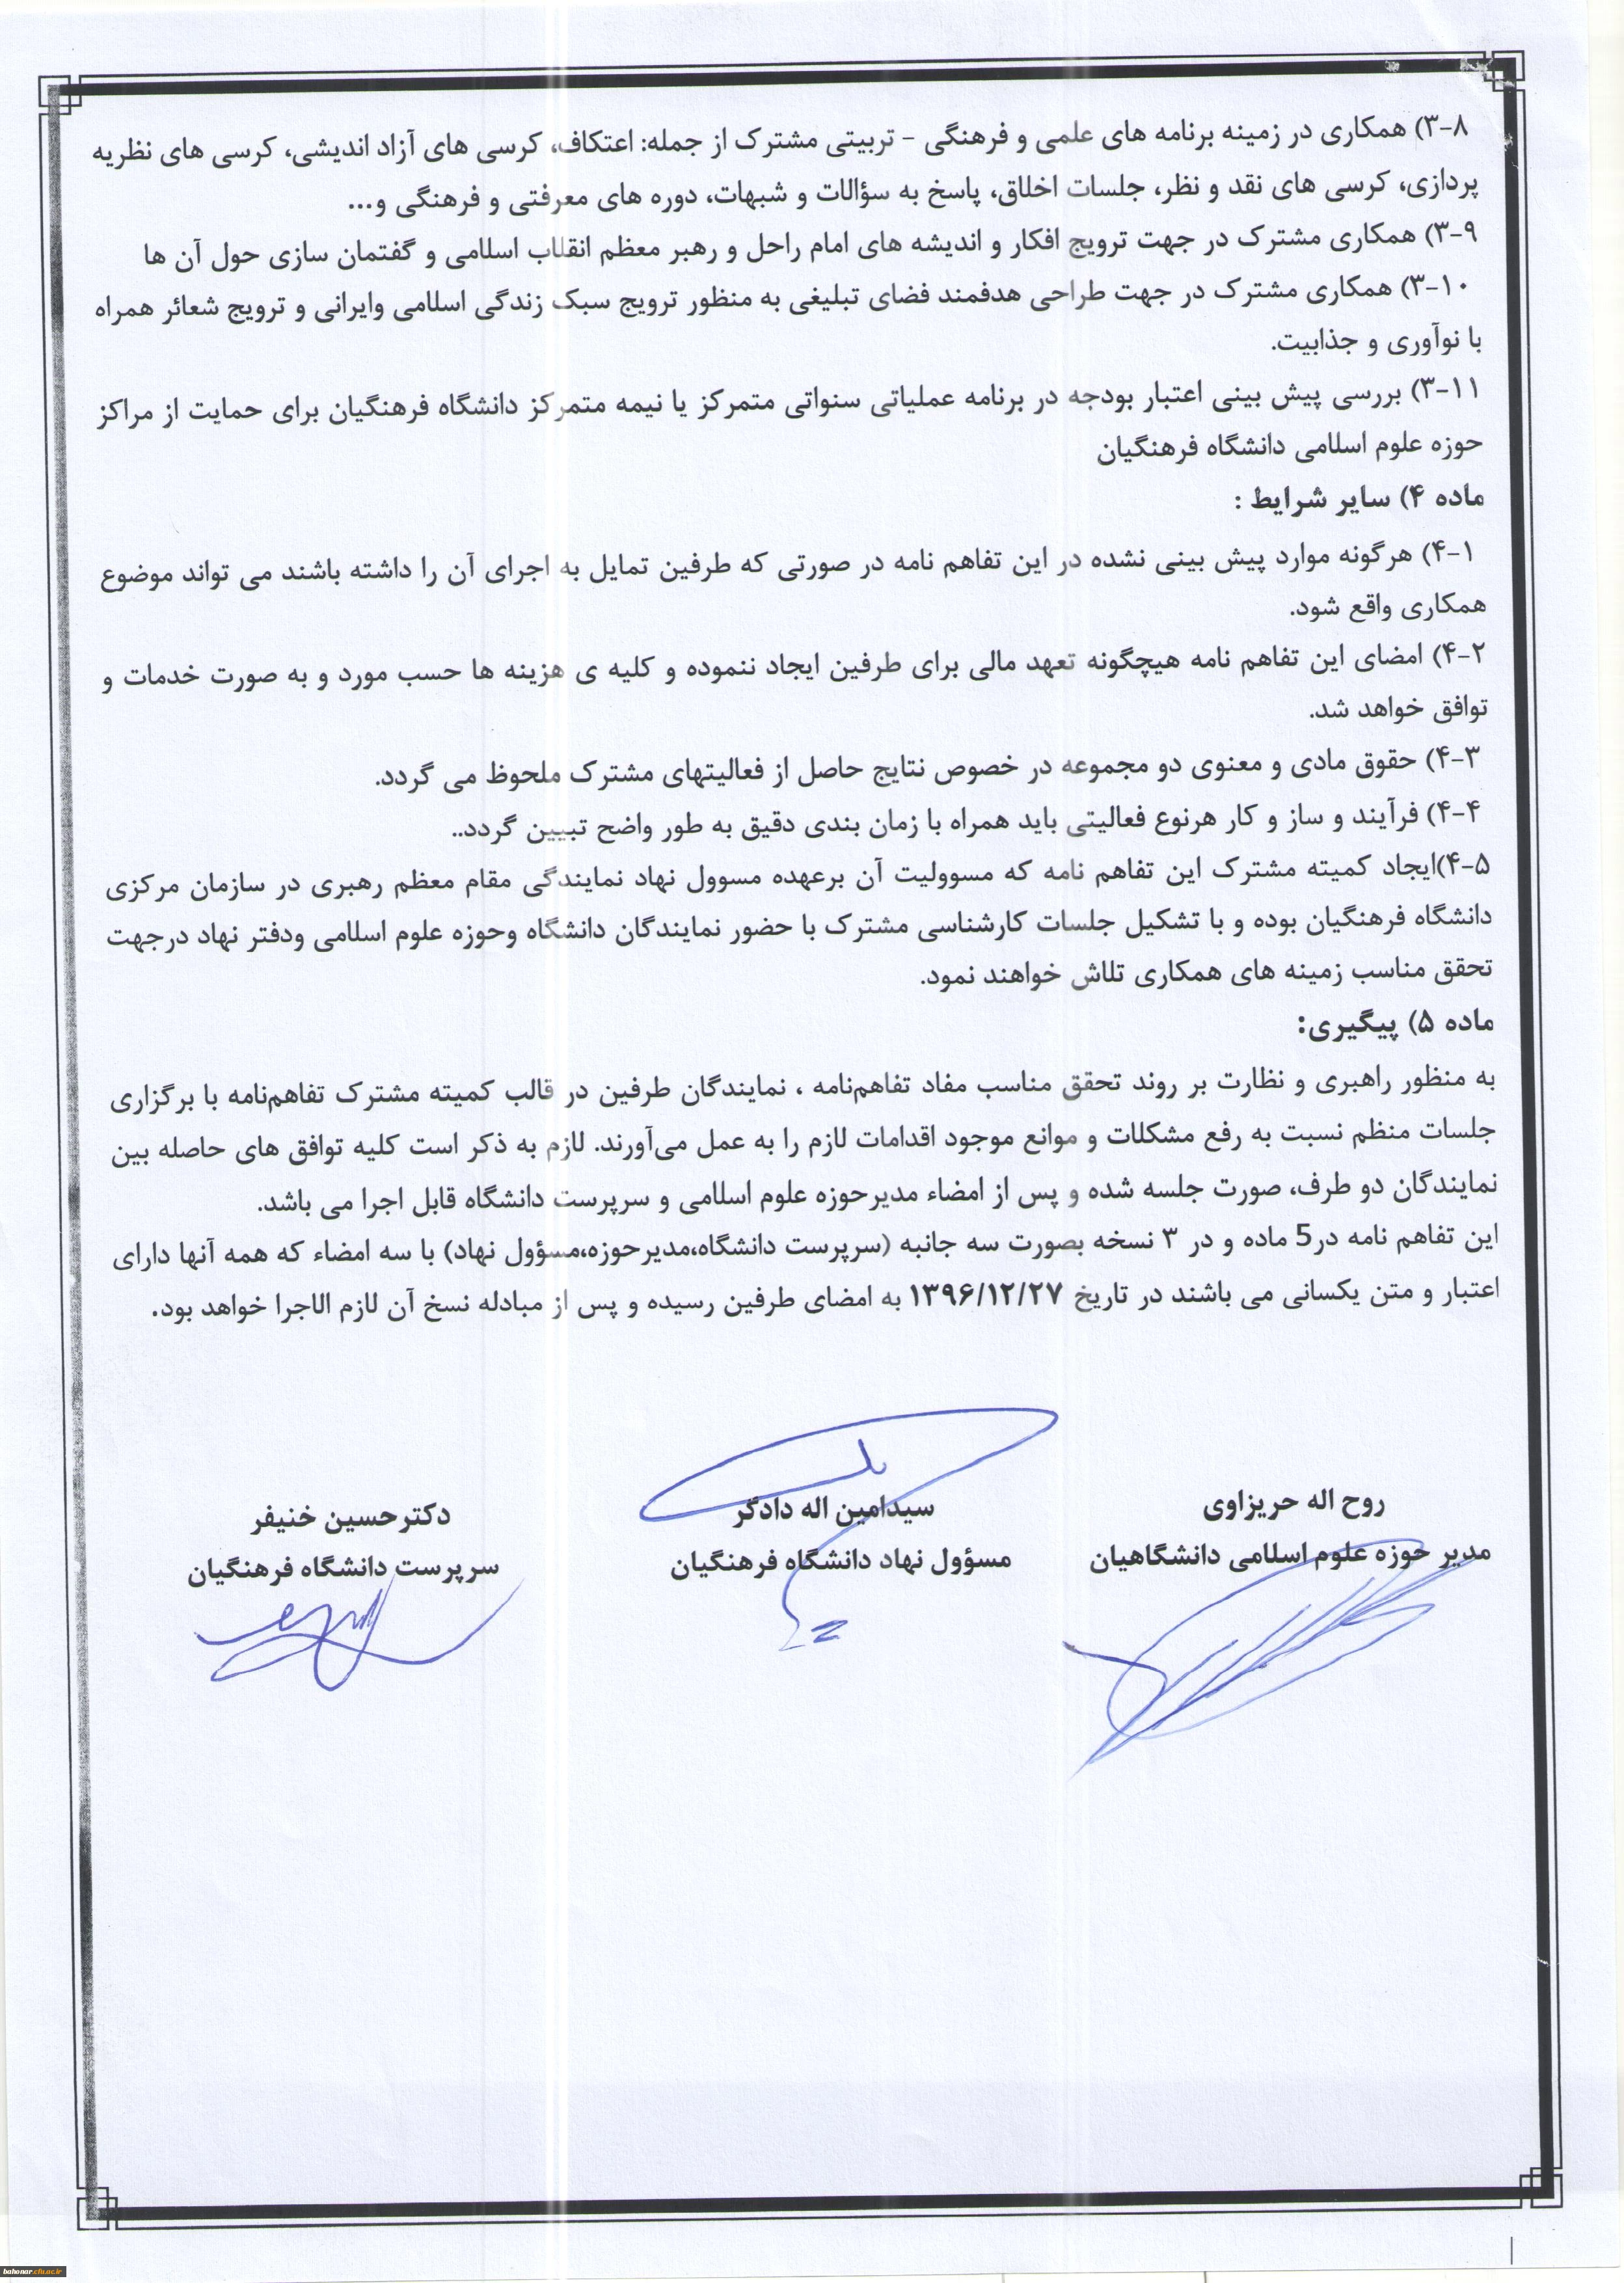 ۳-۸) همکاری در زمینه برنامه های علمی و فرهنگی - تربیتی مشترک از جمله: اعتکاف، کرسی های آزاد اندیشی، کرسی های نظریه
پردازی، کرسی های نقد و نظر، جلسات اخلاق، پاسخ به سؤالات و شبهات، دوره های معرفتی و فرهنگی و...
۳-۹) همکاری مشترک در جهت ترویج افکار و اندیشه های امام راحل و رهبر معظم انقلاب اسلامی و گفتمان سازی حول آن ها
۳-۱۰) همکاری مشترک در جهت طراحی هدفمند فضای تبلیغی به منظور ترویج سبک زندگی اسلامی وایرانی و ترویج شعائر همراه
با نوآوری و جذابیت.
۳-۱۱) بررسی پیش بینی اعتبار بودجه در برنامه عملیاتی سنواتی متمرکز یا نیمه متمرکز دانشگاه فرهنگیان برای حمایت از مراکز
حوزه علوم اسلامی دانشگاه فرهنگیان
ماده ۴) سایر شرایط :
۴-۱) هرگونه موارد پیش بینی نشده در این تفاهم نامه در صورتی که طرفین تمایل به اجرای آن را داشته باشند می تواند موضوع
همکاری واقع شود.
۴-۲) امضای این تفاهم نامه هیچگونه تعهد مالی برای طرفین ایجاد ننموده و کلیه ی هزینه ها حسب مورد و به صورت خدمات و
توافق خواهد شد.
۴-۳) حقوق مادی و معنوی دو مجموعه در خصوص نتایج حاصل از فعالیتهای مشترک ملحوظ می گردد.
۴-۴) فرآیند و ساز و کار هرنوع فعالیتی باید همراه با زمان بندی دقیق به طور واضح تبیین گردد..
۴-۵)ایجاد کمیته مشترک این تفاهم نامه که مسوولیت آن برعهده مسوول نهاد نمایندگی مقام معظم رهبری در سازمان مرکزی
دانشگاه فرهنگیان بوده و با تشکیل جلسات کارشناسی مشترک با حضور نمایندگان دانشگاه وحوزه علوم اسلامی ودفتر نهاد درجهت
تحقق مناسب زمینه های همکاری تلاش خواهند نمود.
ماده ۵) پیگیری:
به منظور راهبری و نظارت بر روند تحقق مناسب مفاد تفاهم‌نامه ، نمایندگان طرفین در قالب کمیته مشترک تفاهم‌نامه با برگزاری
جلسات منظم نسبت به رفع مشکلات و موانع موجود اقدامات لازم را به عمل می‌آورند. لازم به ذکر است کلیه توافق های حاصله بین
نمایندگان دو طرف، صورت جلسه شده و پس از امضاء مدیرحوزه علوم اسلامی و سرپرست دانشگاه قابل اجرا می باشد.
این تفاهم نامه در5 ماده و در ۳ نسخه بصورت سه جانبه (سرپرست دانشگاه،مدیرحوزه،مسؤول نهاد) با سه امضاء که همه آنها دارای
اعتبار و متن یکسانی می باشند در تاریخ ۱۳۹۶/۱۲/۲۷ به امضای طرفین رسیده و پس از مبادله نسخ آن لازم الاجرا خواهد بود.
روح اله حریزاوی
مدیر حوزه علوم اسلامی دانشگاهیان
سیدامین اله دادگر
مسؤول نهاد دانشگاه فرهنگیان
دکترحسین خنیفر
سرپرست دانشگاه فرهنگیان
bahonar.cfu.ac.ir